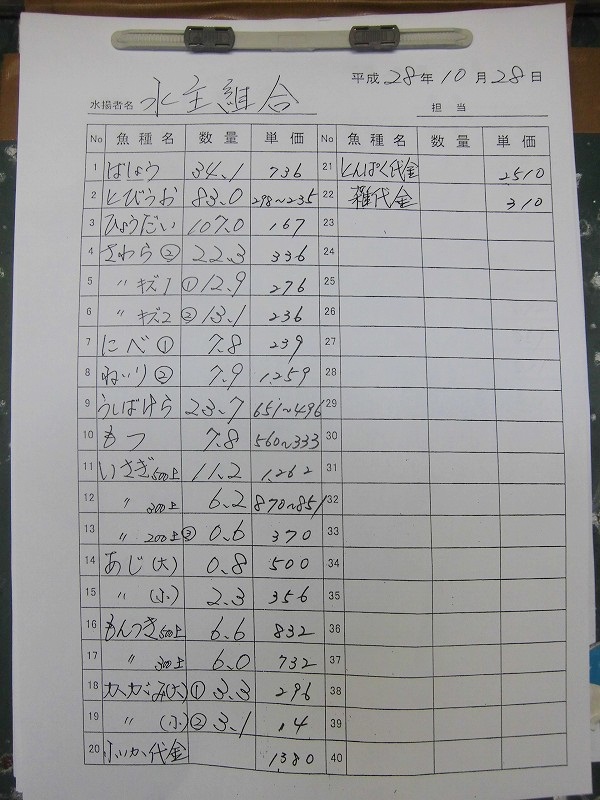 平成 28年 10月 28日
水揚者名 水主組合
担当
No 魚種名 数量 単価 No 魚種名 数量 単価
1 ばしょう 34.1 736 21 とんぱく代金 2510
2 とびうお 83.0 298~235 22 雑代金 310
3 ひょうだい 107.0 167 23
4 さわら② 22.3 336 24
5 〃 キズ1 ① 12.9 276 25
6 〃 キズ2 ② 13.1 236 26
7 にべ① 7.8 239 27
8 ねいり② 7.9 1,259 28
9 うしばけら 23.7 651~496 29
10 もつ 7.8 560~333 30
11 いさぎ500上 11.2 1,262 31
12 〃 300上 6.2 870~851 32
13 〃 200上② 0.6 370 33
14 あじ(大) 0.8 500 34
15 〃 (小) 2.3 356 35
16 もんつき500上 6.6 832 36
17 〃 300上 6.0 732 37
18 カガミ(大)① 3.3 296 38
19 〃 (小)② 3.1 14 39
20 小いか代金 1380 40